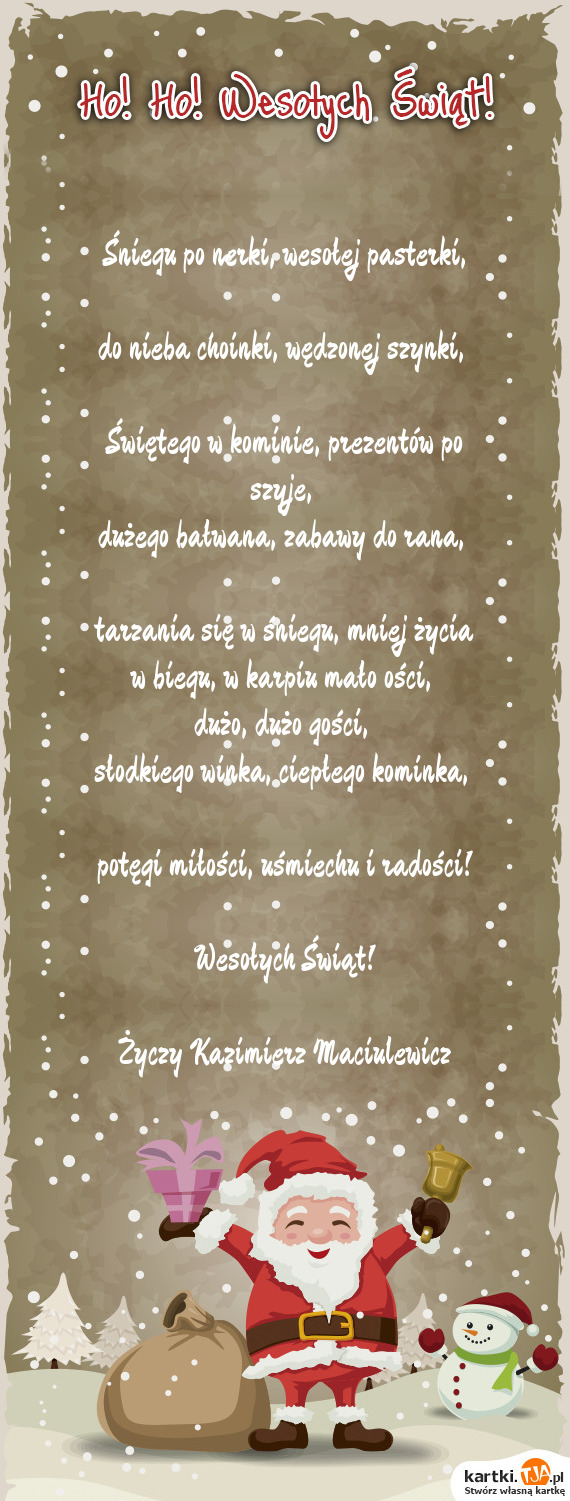 Ho! Ho! Wesołych Świąt!
Śniegu po nerki, wesołej pasterki,
do nieba choinki, wędzonej szynki,
Świętego w kominie, prezentów po
szyje,
dużego bałwana, zabawy do rana,
tarzania się w śniegu, mniej życia
w biegu, w karpiu mało ości,
dużo, dużo gości,
słodkiego winka, ciepłego kominka,
potęgi miłości, uśmiechu i radości!
Wesołych Świąt!
Życzy Kazimierz Maciulewicz
kartki.TJA.pl
Stwórz własną kartkę